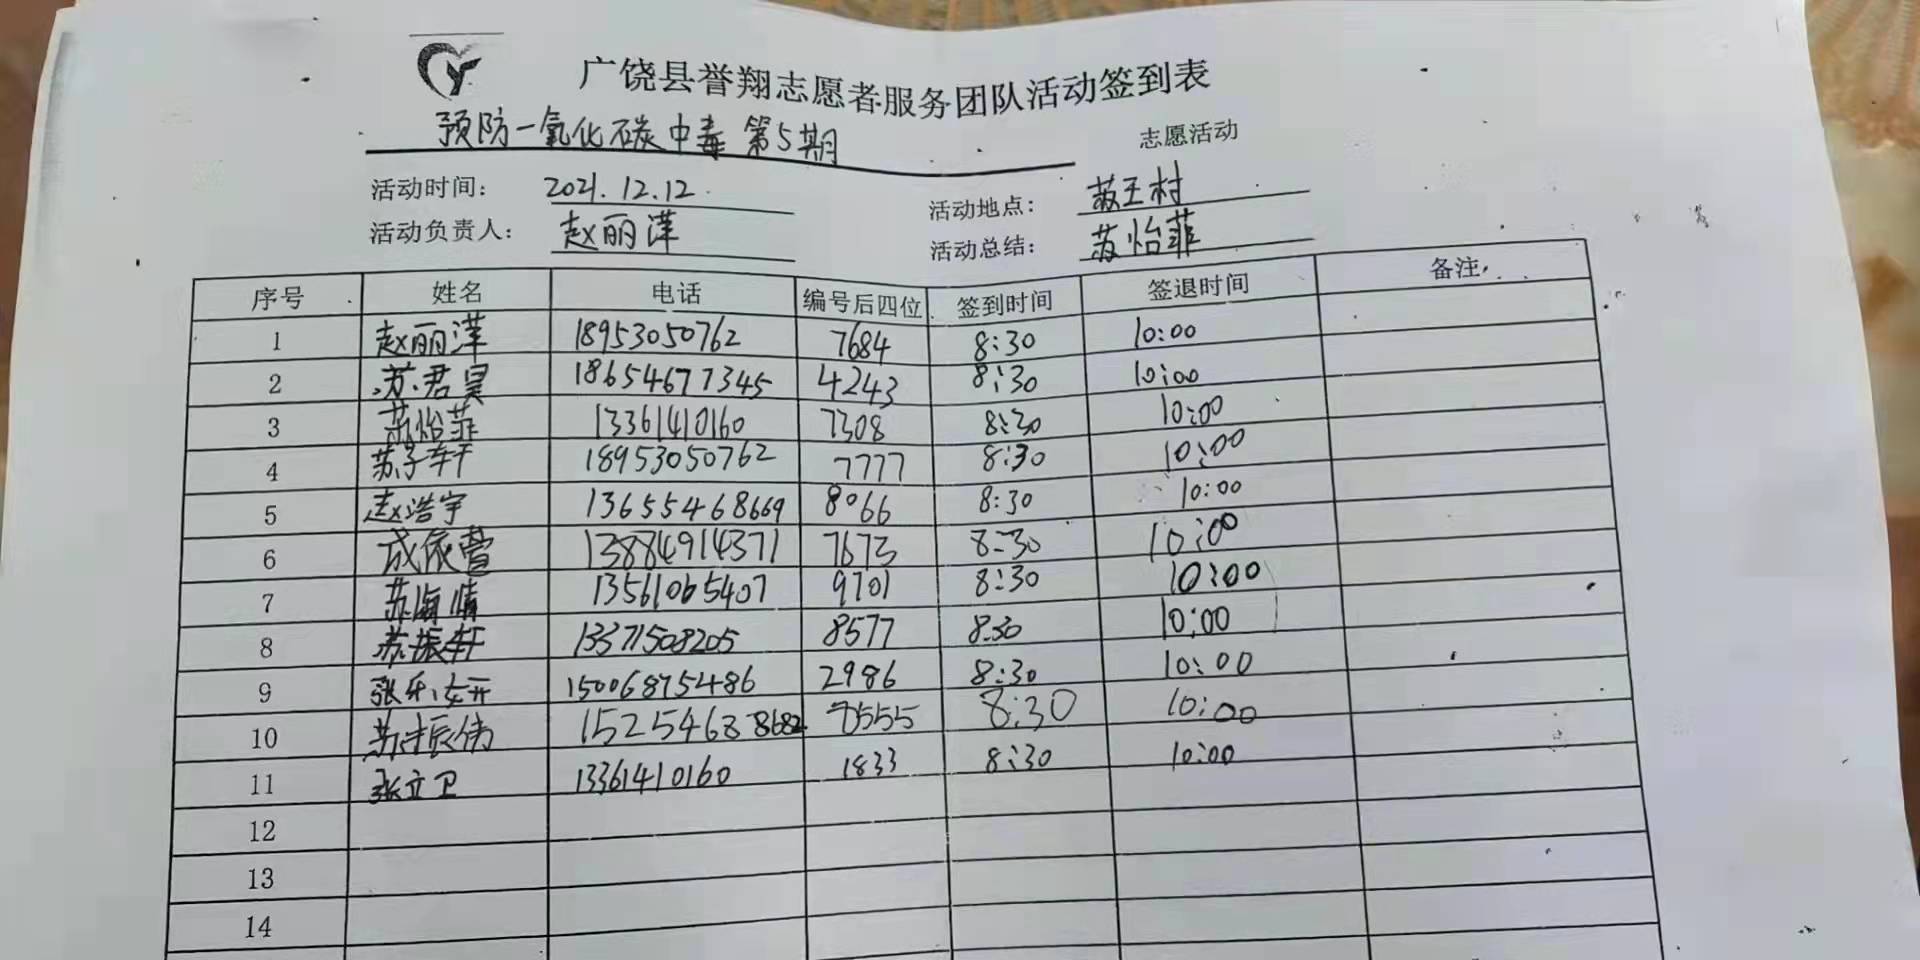 广饶县誉翔志愿者服务团队活动签到表
预防一氧化碳中毒 第5期 志愿活动
活动时间： 2021.12.12 活动地点： 苏王村
活动负责人： 赵丽洋 活动总结： 苏怡菲
序号 姓名 电话 编号后四位 签到时间 签退时间 备注
1 赵丽洋 18953050762 7684 8:30 10:00
2 苏君昊 18654677345 4243 8:30 10:00
3 苏怡菲 13361410160 7308 8:30 10:00
4 苏子轩 18953050762 7777 8:30 10:00
5 赵浩宇 13655468669 8066 8:30 10:00
6 成依萱 13884914371 7673 8:30 10:00
7 苏海情 13561065407 9701 8:30 10:00
8 苏振轩 13371508205 8577 8:30 10:00
9 张乐妍 15006875486 2986 8:30 10:00
10 苏振伟 15254688682 8555 8:30 10:00
11 张立卫 13361410160 1833 8:30 10:00
12
13
14